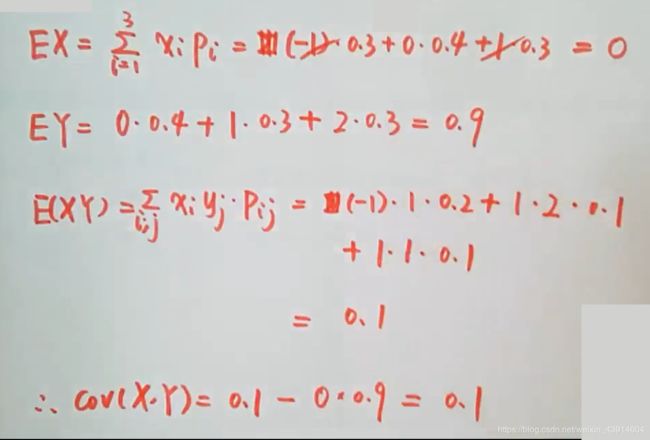 EX = 3 Σ i=1 xi pi = (-1)·0.3+0·0.4+1·0.3 = 0
EY = 0·0.4+1·0.3+2·0.3 = 0.9
E(XY) = Σ i,j xi yj·Pij = (-1)·1·0.2+1·2·0.1
+1·1·0.1
= 0.1
∴ cov(X.Y) = 0.1 - 0×0.9 = 0.1
https://blog.csdn.net/weixin_43914604